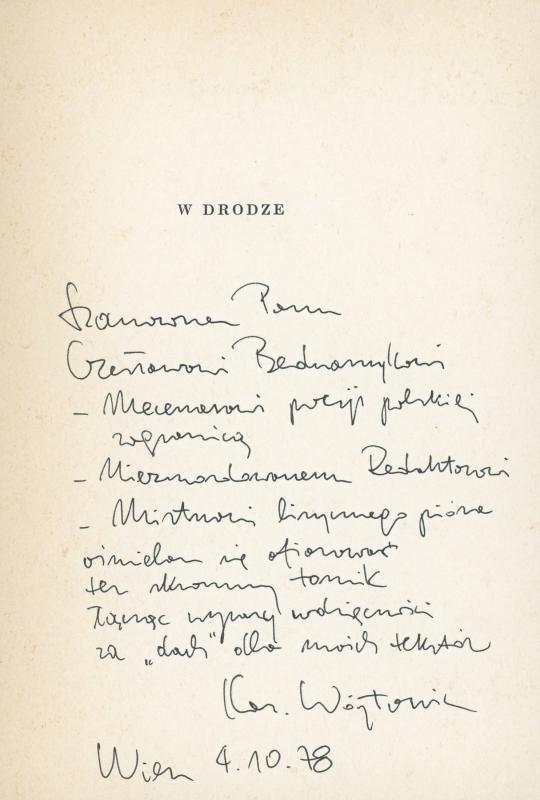 W DRODZE
Szanownemu Panu
Czesławowi Bednarczykowi
– Mecenasowi poezji polskiej
zagranicą
– Niezmordowanemu Redaktorowi
– Mistrzowi lirycznego pióra
ośmielam się ofiarować
ten skromny tomik
łącząc wyrazy wdzięczności
za „dach" dla moich tekstów
Kar. Wójtowicz
Wien 4.10.78